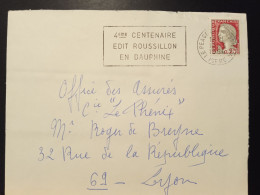 4EME CENTENAIRE
EDIT ROUSSILLON
EN DAUPHINE
Office des Assurés
Cie "Le Phénix"
Mr Roger de Breyne
32 Rue de la République
69 - Lyon